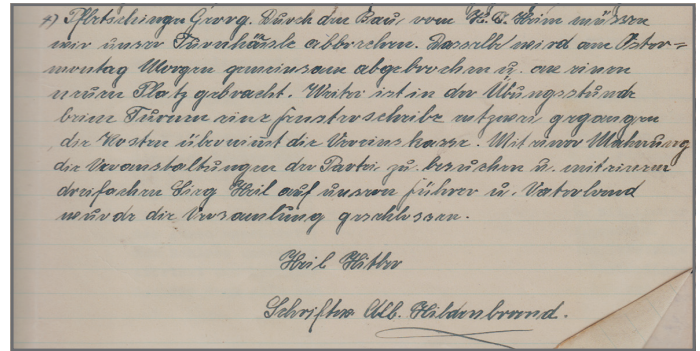 4) Pfletschinger Georg. Durch den Bau, vom H.J. Heim müssen
wir unser Turnhäusle abbrechen. Dasselbe wird am Oster=
montag Morgen gemeinsam abgebrochen u. an einen
neuen Platz gebracht. Weiter ist in der Übungsstunde
beim Turnen eine Fensterscheibe entzwei gegangen
die Kosten übernimt die Vereinskasse. Mit einer Mahnung
die Veranstaltungen der Partei zu besuchen u. mit einem
dreifachen Sieg Heil auf unsern Führer u. Vaterland
wurde die Versamlung geschlossen.
Heil Hitler
Schriftw. Alb. Hildenbrand.